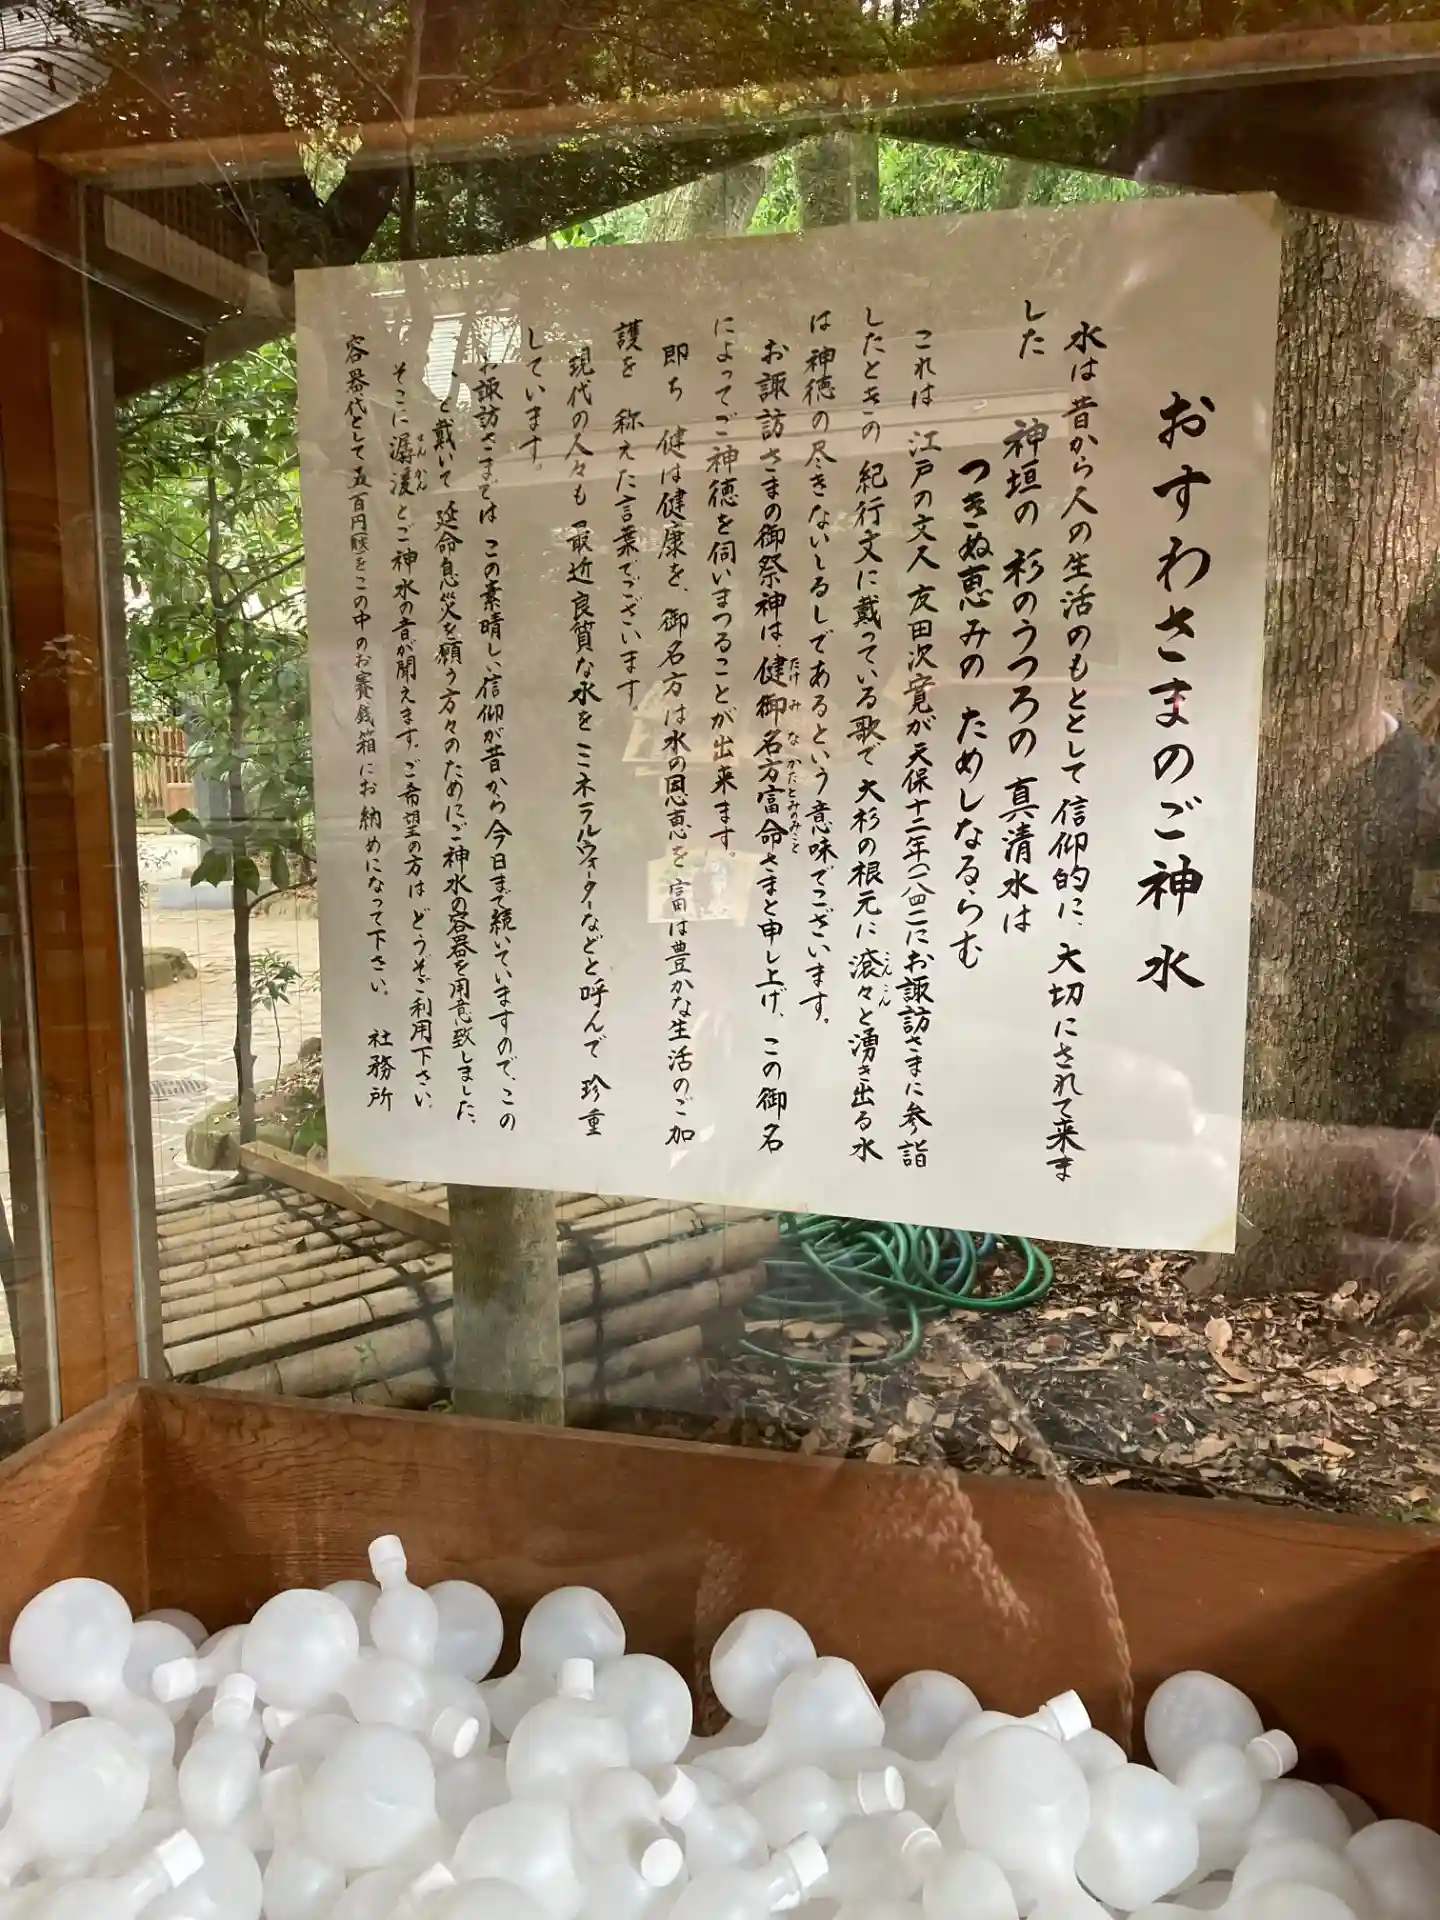 おすわさまのご神水
水は昔から人の生活のもととして信仰的に、大切にされて来ま
した
神垣の 杉のうつろの 真清水は
つきぬ恵みの ためしなるらむ
これは 江戸の文人 友田次寛が天保十二年(一八四一)にお諏訪さまに参詣
したときの 紀行文に戴っている歌で 大杉の根元に滾々と湧き出る水
こんこん
は神徳の尽きないしるしであるという意味でございます。
お諏訪さまの御祭神は、健御名方富命さまと申し上げ、この御名
たけみなかたとみのみこと
によってご神徳を伺いまつることが出来ます。
即ち 健は健康を、御名方は水の恩恵を 富は豊かな生活のご加
護を 称えた言葉でございます。
現代の人々も 最近良質な水をミネラルウォーターなどと呼んで 珍重
しています。
お諏訪さまでは この素晴しい信仰が昔から今日まで続いていますので、この
と戴いて 延命息災を願う方々のためにご神水の容器を用意致しました。
そこに潺湲とご神水の音が聞えます。ご希望の方は どうぞご利用下さい。
せんかん
容器代として 五百円 をこの中のお賽銭箱にお納めになって下さい。 社務所